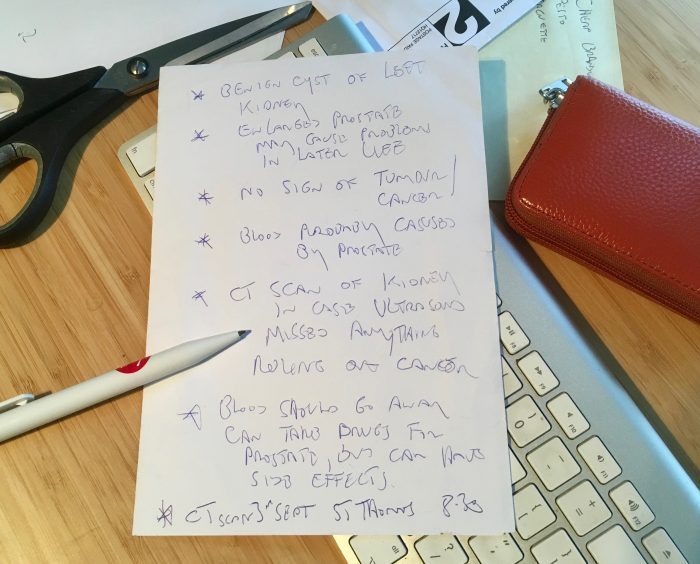 * BENIGN CYST OF LEFT
KIDNEY
* ENLARGED PROSTATE
MAY CAUSE PROBLEMS
IN LATER LIFE
* NO SIGN OF TUMOUR/
CANCER
* BLOOD PROBABLY CAUSED
BY PROSTATE
* CT SCAN OF KIDNEY
IN CASE ULTRASOUND
MISSED ANYTHING
RULING OUT CANCER
* BLOOD SHOULD GO AWAY
CAN TAKE DRUGS FOR
PROSTATE, BUT CAN HAVE
SIDE EFFECTS.
* CT SCAN 3RD SEPT ST THOMAS 8.30
2
POSTAGE PAID
CHEAP